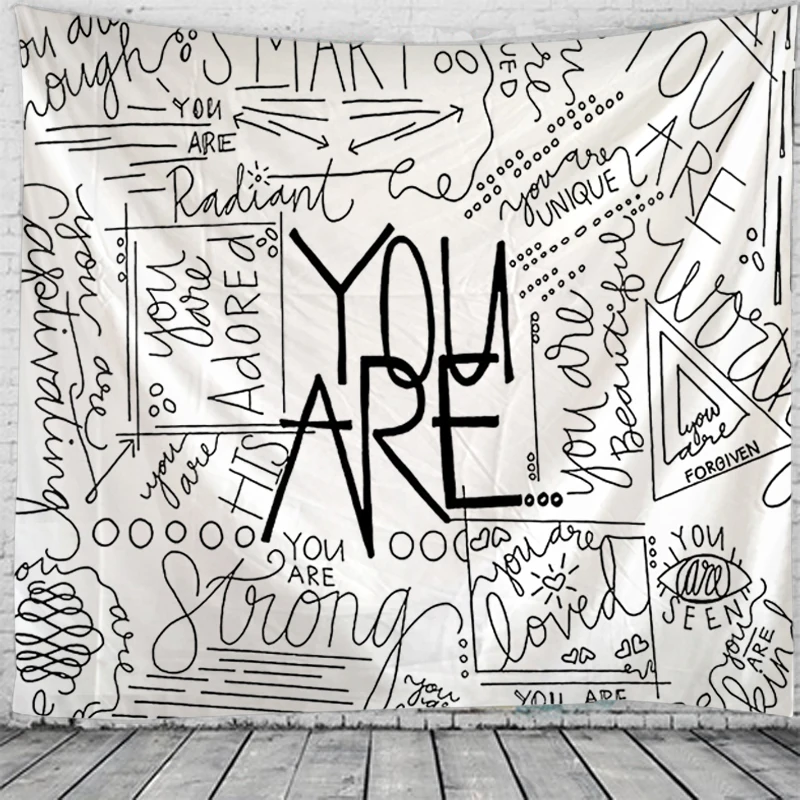 you are
nough
SMART
YOU
ARE
Radiant
you are
UNIQUE
YOU
ARE
Worth
you are
captivating
you
are
AdORED
YOU
ARE...
you are
Beautiful
you
are
FORGIVEN
you
are
HIS
YOU
ARE
Strong
you are
loved
YOU
are
SEEN
are
you
YOU ARE
you
ARE